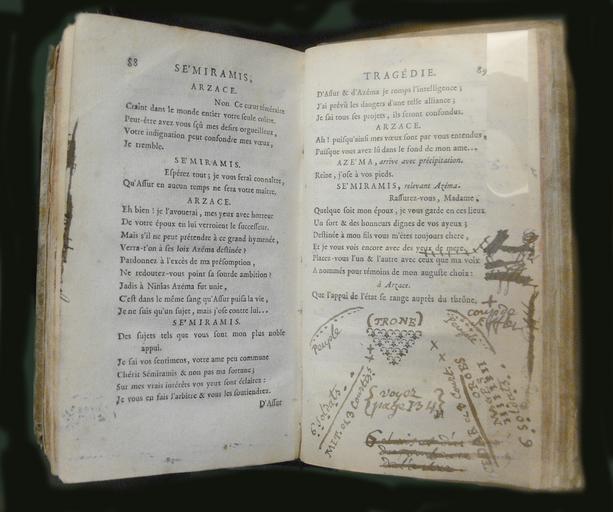 88
SE'MIRAMIS,
ARZACE.
Non. Ce cœur téméraire
Craint dans le monde entier votre seule colère.
Peut-être avez vous sçû mes desirs orgueilleux,
Votre indignation peut confondre mes vœux,
Je tremble.
SE'MIRAMIS.
Espérez tout; je vous ferai connaître,
Qu'Assur en aucun temps ne sera votre maître.
ARZACE.
Eh bien! je l'avouerai, mes yeux avec horreur
De votre époux en lui verroient le successeur.
Mais s'il ne peut prétendre à ce grand hymenée,
Verra-t'on à ses loix Azéma destinée?
Pardonnez à l'excès de ma présomption,
Ne redoutez-vous point sa sourde ambition?
Jadis à Ninias Azéma fut unie,
C'est dans le même sang qu'Assur puisa la vie,
Je ne suis qu'un sujet, mais j'ose contre lui...
SE'MIRAMIS.
Des sujets tels que vous sont mon plus noble
appui.
Je sai vos sentimens, votre ame peu commune
Chérit Sémiramis & non pas ma fortune;
Sur mes vrais intérêts vos yeux sont éclairés:
Je vous en fais l'arbitre & vous les soutiendrez.
D'Assur
TRAGÉDIE. 89
D'Assur & d'Azéma je romps l'intelligence;
J'ai prévû les dangers d'une telle alliance;
Je sai tous ses projets, ils seront confondus.
ARZACE.
Ah! puisqu'ainsi mes vœux sont par vous entendus,
Puisque vous avez lû dans le fond de mon ame...
AZE'MA, arrive avec précipitation.
Reine, j'ose à vos pieds.
SE'MIRAMIS, relevant Azéma.
Rassurez-vous, Madame,
Quelque soit mon époux, je vous garde en ces lieux
Un sort & des honneurs dignes de vos ayeux;
Destinée à mon fils vous m'êtes toujours chere,
Et je vous vois encore avec des yeux de mere,
Placez-vous l'un & l'autre avec ceux que ma voix
A nommés pour témoins de mon auguste choix:
à Arzace.
Que l'appui de l'état se range auprès du thrône,
(TRONE)
Peuple
Peuple
{voyez
page 134}
6 soldats
6 soldats